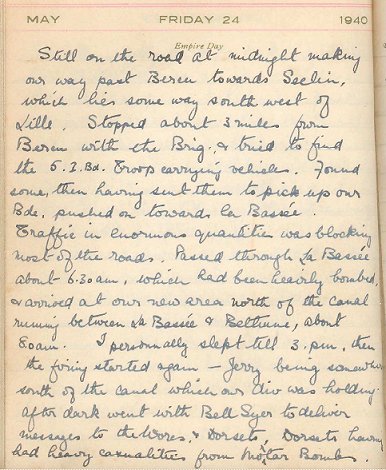 MAY FRIDAY 24 1940
Empire Day
Still on the road at midnight making
our way past Beren towards Seclin,
which lies some way south west of
Lille. Stopped about 3 miles from
Beren with the Brig. & tried to find
the 5. I. Bd. Troop carrying vehicles. Found
some, then having sent them to pick up our
Bde, pushed on towards La Bassée.
Traffic in enormous quantities was blocking
most of the roads. Passed through La Bassée
about 6.30am, which had been heavily bombed,
& arrived at our new area north of the canal
running between La Bassée & Bethune, about
8.0am. I personnally slept till 3.pm, then
the firing started again – Jerry being somewhere
south of the canal which our div was holding.
After dark went with Bell Syer to deliver
messages to the Worcs, & Dorsets, Dorsets having
had heavy casualities from Motar Bombs.